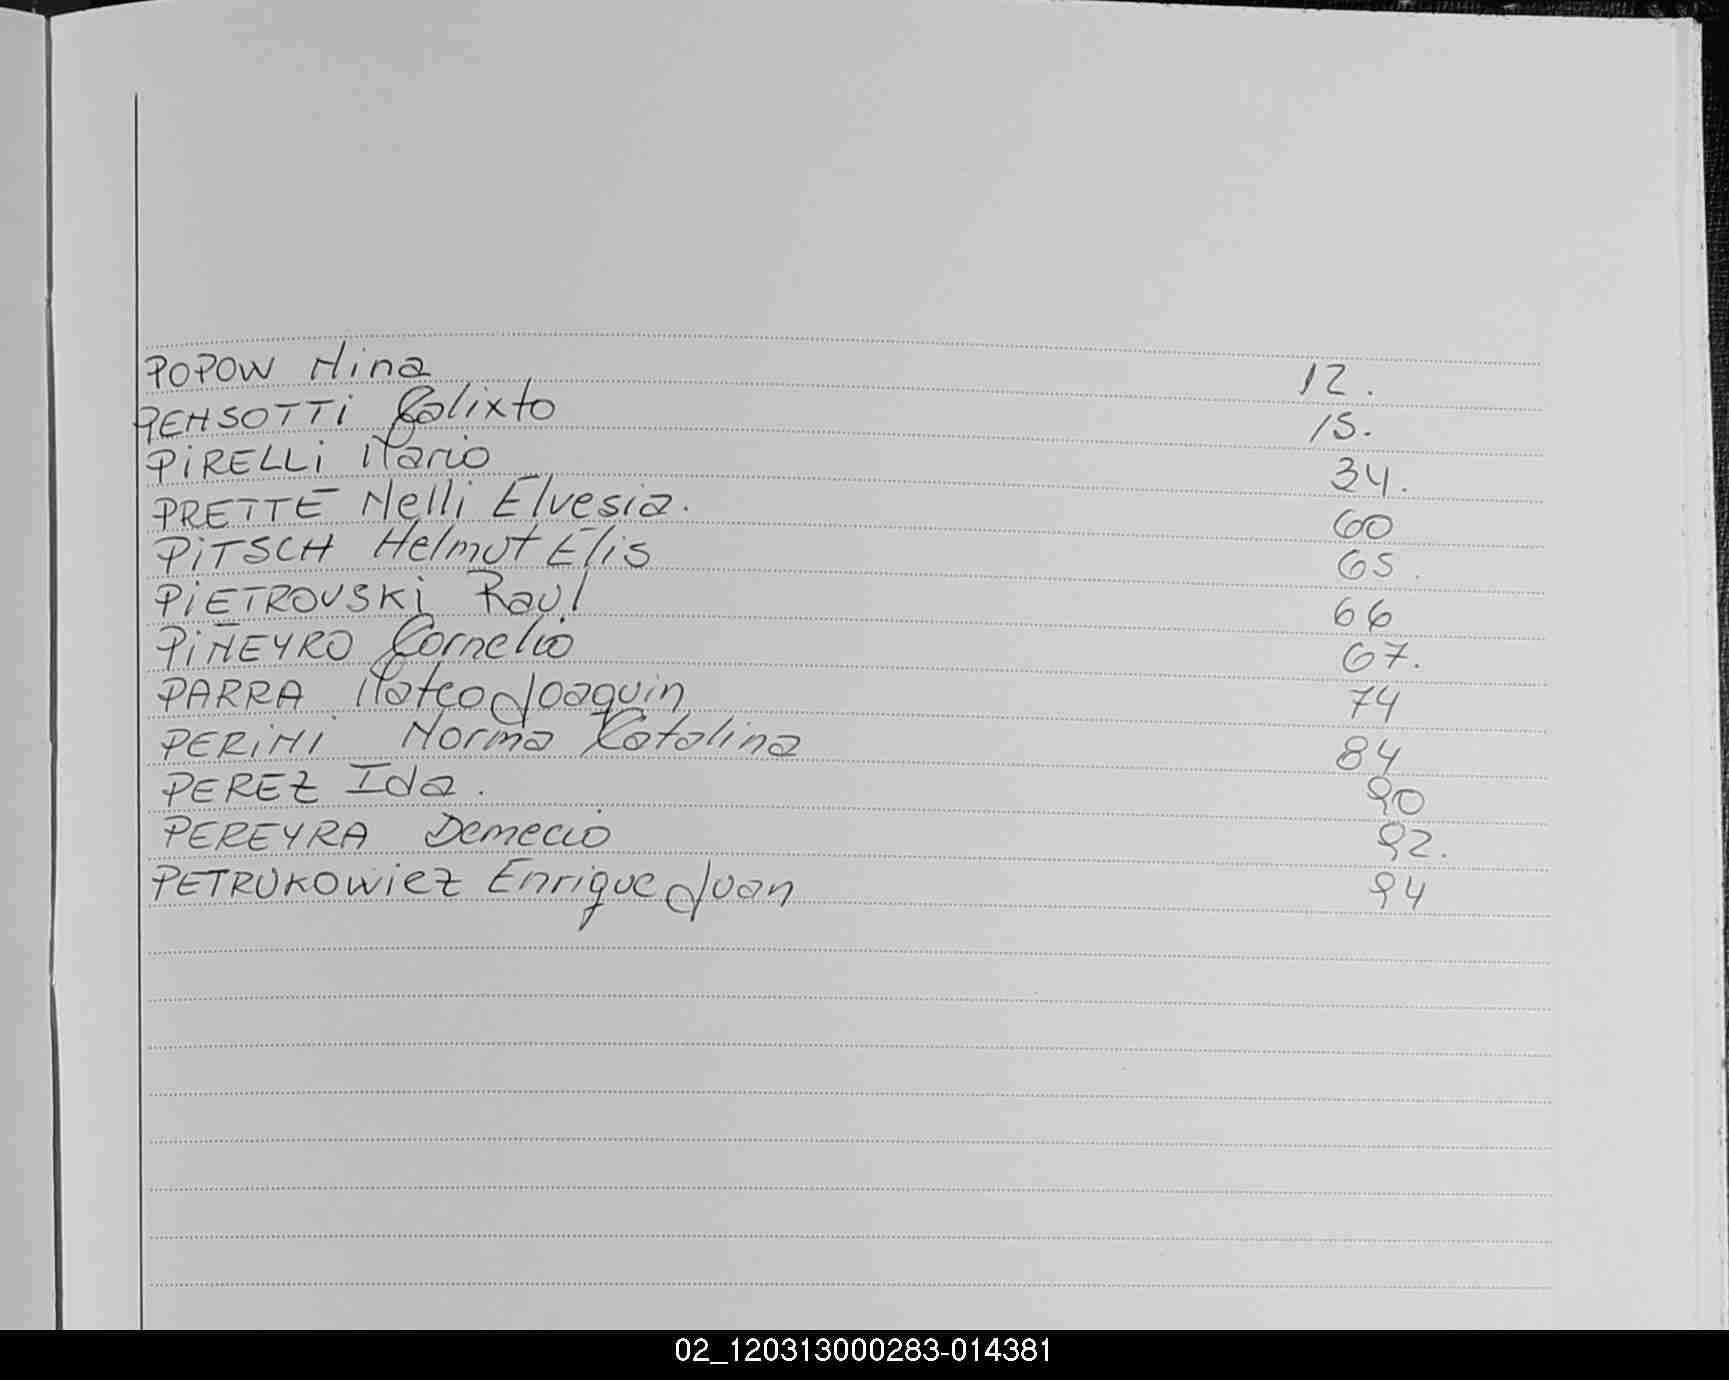 POPOW Nina 12.
PENSOTTi Calixto 15.
PiRELLi Mario 34.
PRETTE Nelli Elvesia. 60
PiTSCH Helmut Elis 65.
PiETROVSKi Raul 66
PiÑEYRO Cornelio 67.
PARRA Mateo Joaquin 74
PERiNi Norma Catalina 84
PEREZ Ida. 90
PEREYRA Demecio 92.
PETRUKOWiEZ Enrique Juan 94
02_120313000283-014381